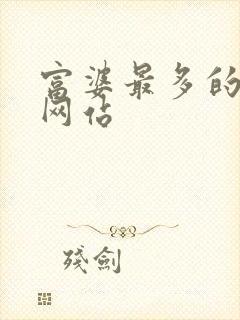 富婆最多的
网站
残劍